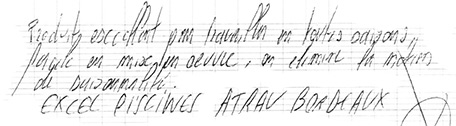 Produits excellent pour travailler en toutes saisons,
facile en mise en oeuvre, on élimine la notion
de saisonnalité.
EXCEL PISCINES ATRAV BORDEAUX